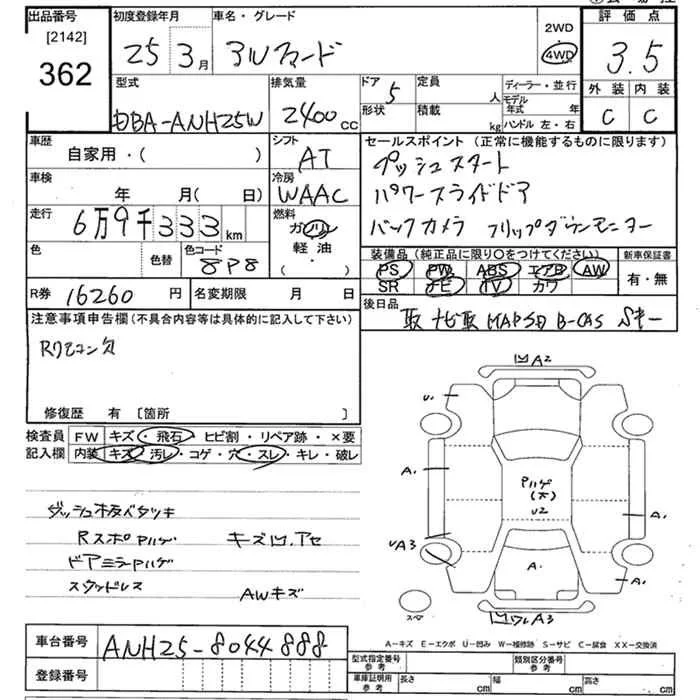 出品番号 初度登録年月 車名・グレード 2WD 評価点
[2142] 25年 3月 アルファード 4WD 3.5
362 外装 内装
C C
型式 排気量 ドア 定員 人 ディーラー・並行
DBA-ANH25W 2400cc 5 形状 積載 kg モデル年式 年
ハンドル 左・右
車歴 シフト セールスポイント(正常に機能するものに限ります)
自家用・( ) AT プッシュスタート
車検 冷房 パワースライドドア
年 月( 日) WAAC バックカメラ フリップダウンモニター
走行 燃料
6万9千333km ガソリン 装備品(純正品に限り○をつけてください) 新車保証書
色 色替 色コード 軽油 PS PW ABS エアB AW 有・無
8P8 ( ・ ) SR ナビ TV カワ
R券 16260円 名変期限 月 日 後日品
取 ナビ取 MAPSD B-CAS Sキー
注意事項申告欄(不具合内容等は具体的に記入して下さい)
Rリモコン欠
修復歴 有 [箇所 ]
検査員 FW キズ・飛石・ヒビ割・リペア跡・×要
記入欄 内装 キズ・汚レ・コゲ・穴・スレ・キレ・破レ
ダッシュ板ベタツキ
Rスポ Pハゲ キズ凹.アセ
ドアミラーPハゲ
スタッドレス AWキズ
凹A2
U.
A.
Pハゲ
(大)
U2
A.
UA3
A.
A.
スペア
凹ワレA3
A-キズ E-エクボ U-凹み W-補修跡 S-サビ C-腐食 XX-交換済
車台番号 ANH25-8044888
登録番号
型式指定番号 参考 類別区分番号 参考
車庫証明用 参考 長さ cm 幅 cm 高さ cm